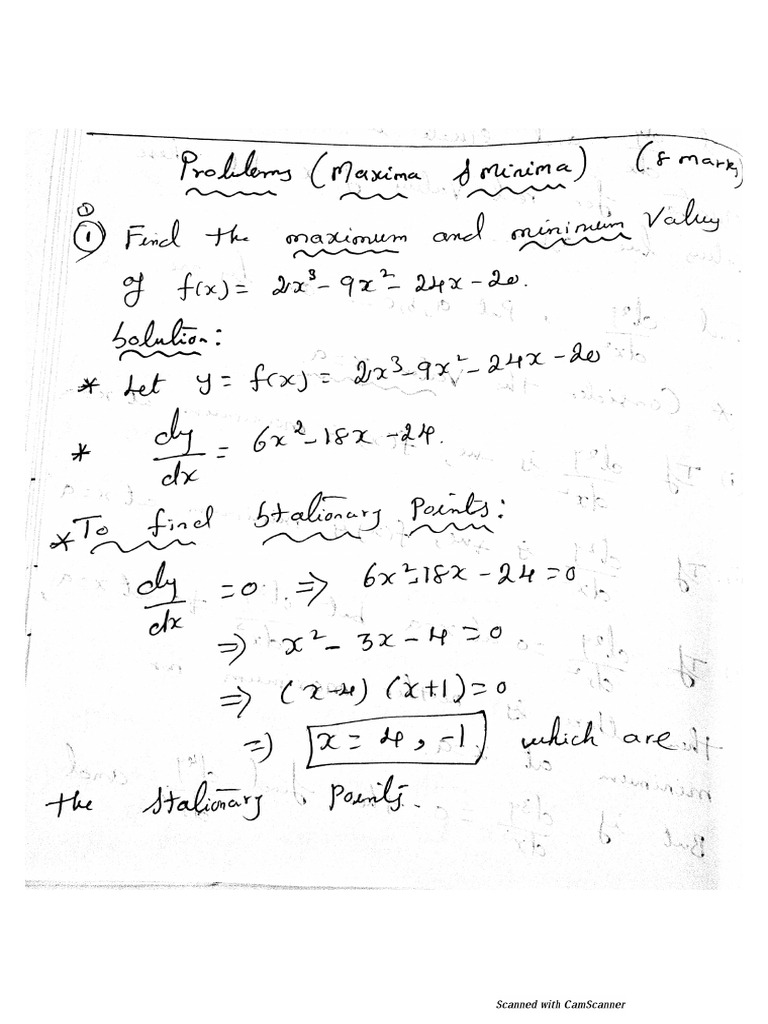 Problems (Maxima & Minima) (8 mark)
① Find the maximum and minimum Value
of f(x) = 2x³ - 9x² - 24x - 20.
Solution:
* Let y = f(x) = 2x³ - 9x² - 24x - 20
* dy/dx = 6x² - 18x - 24.
* To find Stationary Points:
dy/dx = 0 ⇒ 6x² - 18x - 24 = 0
⇒ x² - 3x - 4 = 0
⇒ (x-4) (x+1) = 0
⇒ x = 4, -1 which are
the Stationary Points.
Scanned with CamScanner